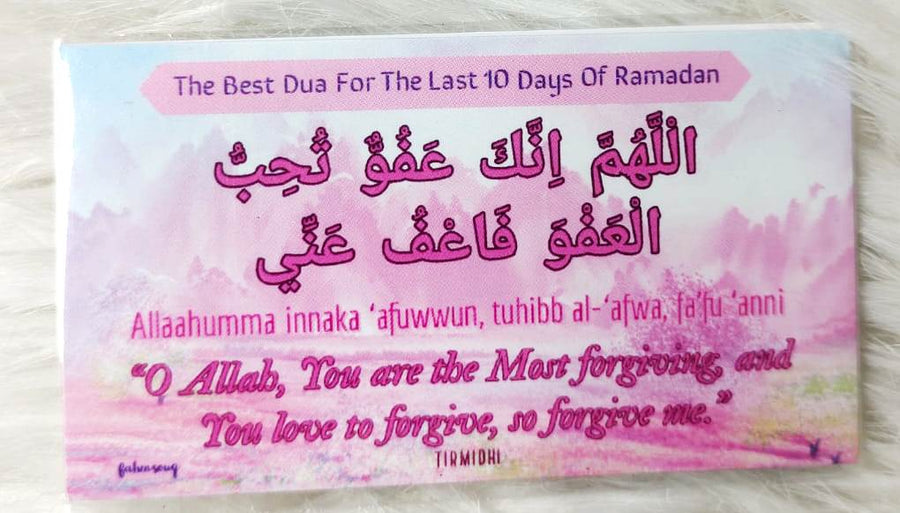 The Best Dua For The Last 10 Days Of Ramadan
اللَّهُمَّ اِنَّكَ عَفُوٌّ تُحِبُّ
الْعَفْوَ فَاعْفُ عَنَّي
Allaahumma innaka ‘afuwwun, tuhibb al-‘afwa, fa’fu ‘anni
“O Allah, You are the Most forgiving, and
You love to forgive, so forgive me.”
TIRMIDHI